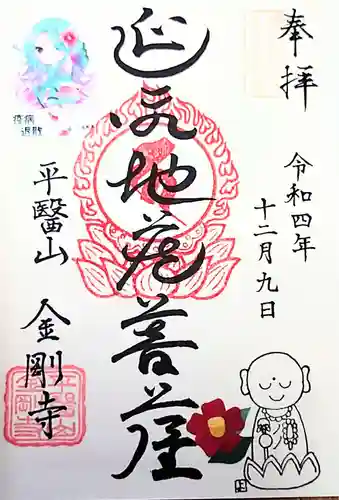 奉拝
令和四年
十二月九日
延気地蔵菩薩
疫病
退散
平醫山
金剛寺